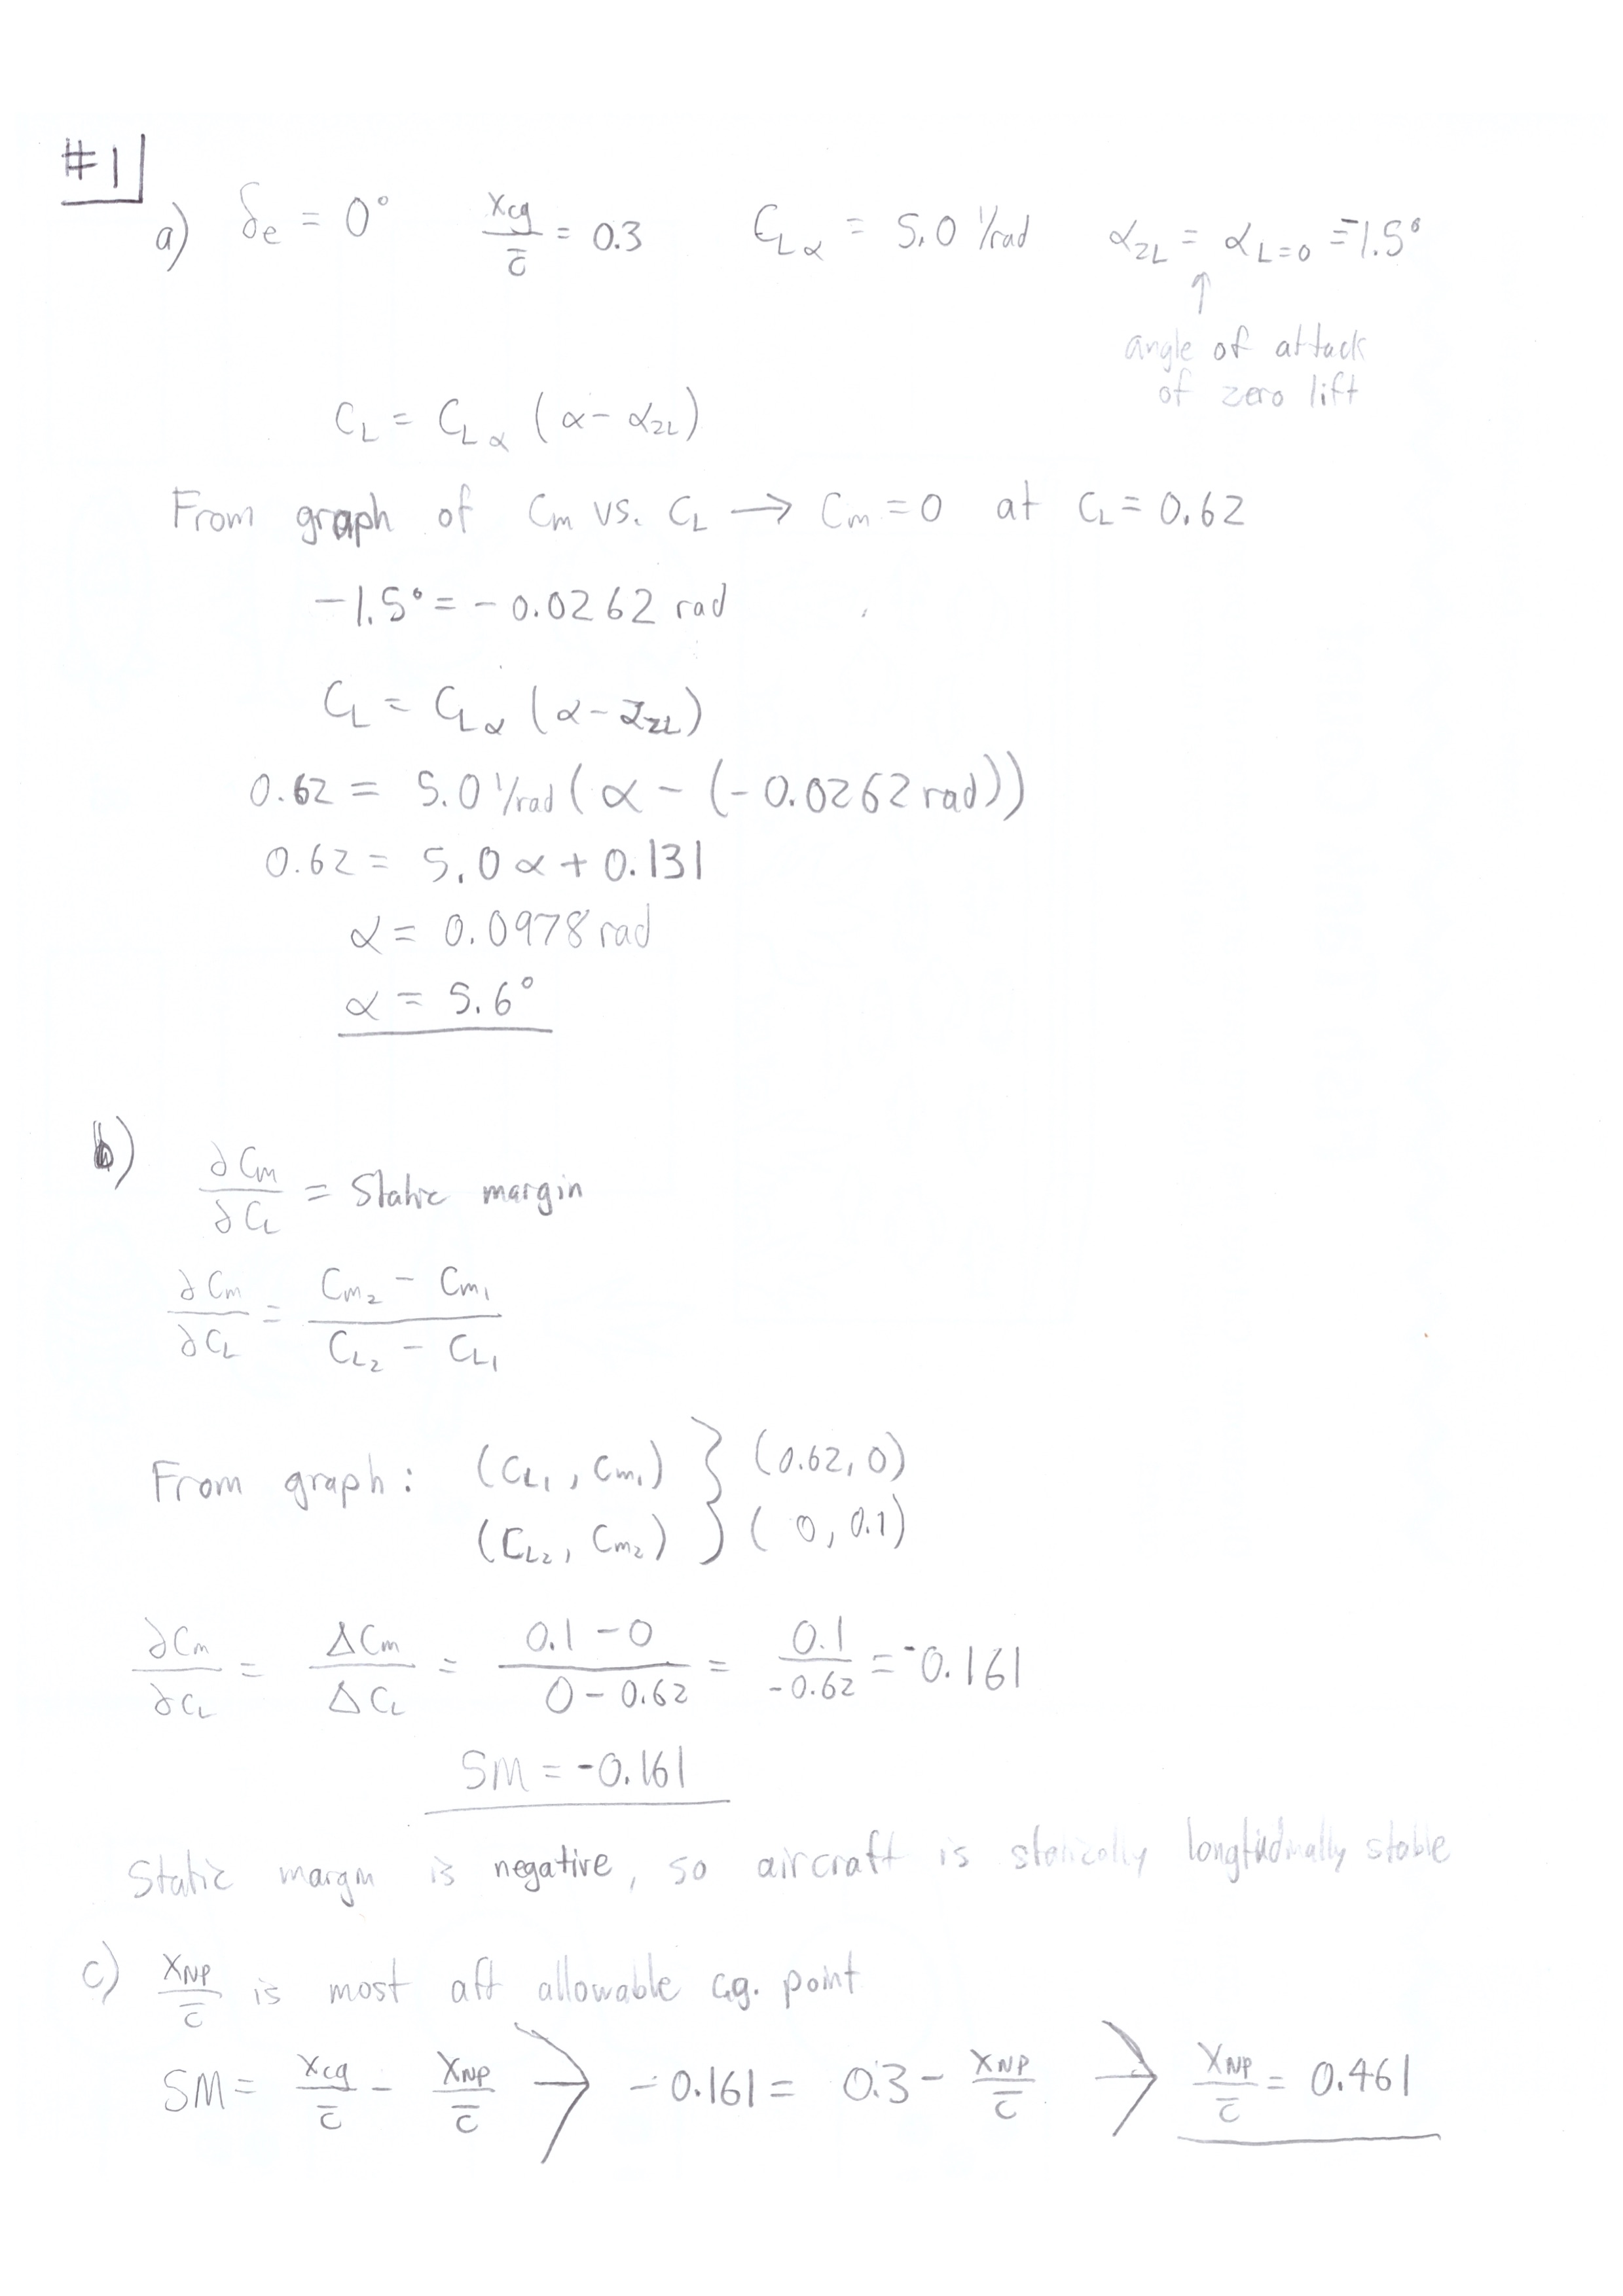 #1
a) δe = 0° xcg/c̄ = 0.3 CLα = 5.0 1/rad αZL = αL=0 = -1.5°
↑
angle of attack
of zero lift
CL = CLα (α - αZL)
From graph of Cm vs. CL → Cm = 0 at CL = 0.62
-1.5° = -0.0262 rad
CL = CLα (α - αZL)
0.62 = 5.0 1/rad (α - (-0.0262 rad))
0.62 = 5.0 α + 0.131
α = 0.0978 rad
α = 5.6°
b) ∂Cm/∂CL = Static margin
∂Cm/∂CL = (Cm2 - Cm1)/(CL2 - CL1)
From graph: (CL1, Cm1) } (0.62, 0)
(CL2, Cm2) } (0, 0.1)
∂Cm/∂CL = ΔCm/ΔCL = (0.1 - 0)/(0 - 0.62) = 0.1/-0.62 = -0.161
SM = -0.161
Static margin is negative, so aircraft is statically longitudinally stable
c) xNP/c̄ is most aft allowable c.g. point
SM = xcg/c̄ - xNP/c̄ → -0.161 = 0.3 - xNP/c̄ → xNP/c̄ = 0.461